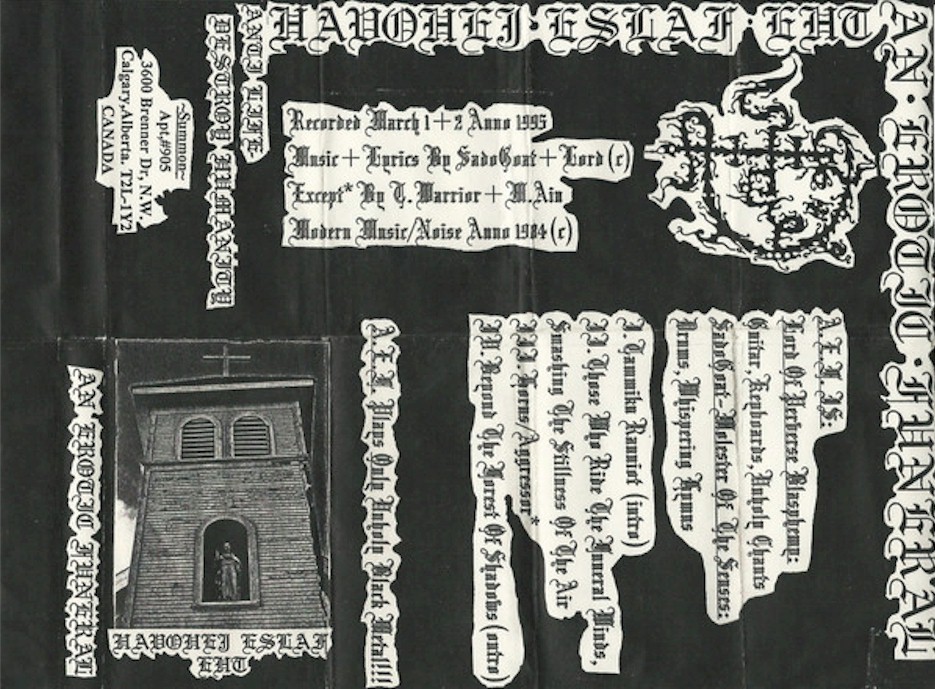 HAVOHEJ·ESLAF·EHT
AN·EROTIC·FUNERAL
ANTI-LIFE-
DESTROY HUMANITY
-Summon-
Apt,#905
3600 Brenner Dr, N.W.
Calgary,Alberta. T2L-1Y2
CANADA
Recorded March 1+2 Anno 1995
Music+ Lyrics By SadoGoat+ Lord (c)
Except* By T. Warrior + M.Ain
Modern Music/Noise Anno 1984 (c)
A.E.F. IS:
Lord Of Perverse Blasphemy:
Guitar, Keyboards, Unholy Chants
SadoGoat-Molester Of The Senses:
Drums, Whispering Hymns
I. (intro)
II Those Who Ride The Funeral Winds,
Smashing The Stillness Of The Air
III Horns/Aggressor*
IV. Beyond The Forest Of Shadows (outro)
A.E.F. Plays Only Unholy Black Metal!!!
HAVOHEJ ESLAF
EHT
AN EROTIC FUNERAL